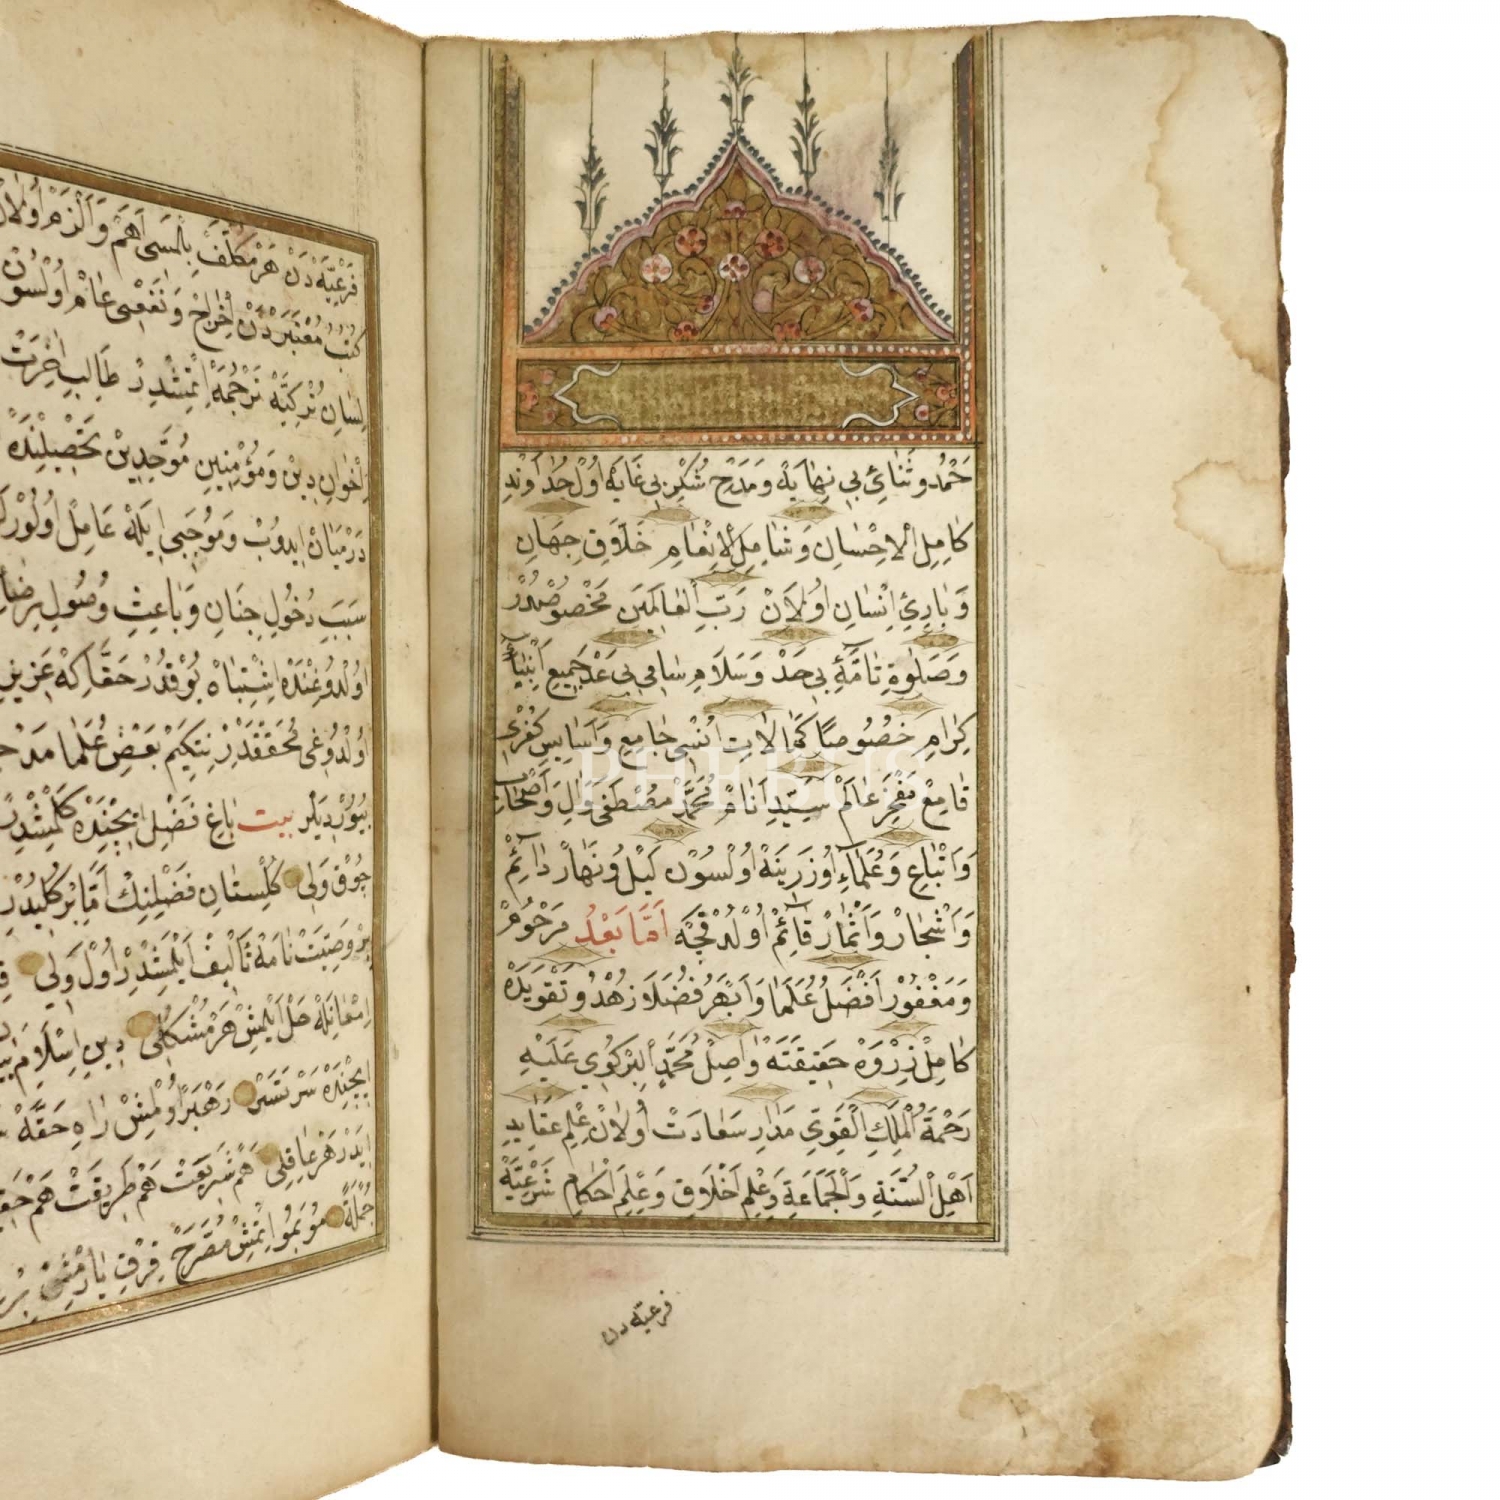 حَمْدُ و ثَنَائِ بِي نِهَايَهْ وَ مَدْحِ شُكْرِ بِي غَايَهْ اُوْلْ خُدَاوَنْدِ
كَامِلِ الْاِحْسَانِ وَ شَامِلِ الْاِنْعَامِ خَلَّاقِ جِهَانِ
وَ بَارِئِ اِنْسَانِ اوُلَانْ رَبِّ الْعَالَمِينَ مَخْصُوصْدُرْ
وَ صَلٰوةِ تَامَّهِٔ بِي حَدْ وَ سَلَامِ سَامِي بِي عَدْ جَمِيعِ اَنْبِيَاءِ
كِرَامِ خُصُوصًا كَمَالَاتِ اُنْسِي جَامِعِ وَ اَسَاسِ كُفْرِي
قَامِعْ مَفْخَرِ عَالَمْ سَيِّدِ اَنَامْ مُحَمَّدْ مُصْطَفَى وَ اٰلِ وَ اَصْحَابِ
وَ اَتْبَاعِ وَ عُلَمَاءِ اُوزَرِينَهْ اُولْسُوْنْ لَيْلُ و نَهَارْ دَائِمْ
وَ اَشْجَارْ وَ اَثْمَارْ قَائِمْ اُوْلْدُقْجَهْ اَمَّا بَعْدُ مَرْحُومْ
وَ مَغْفُورْ اَفْضَلُ عُلَمَا وَ اَبْهَرُ فُضَلَا زُهْدُ و تَقْوَيدَهْ
كَامِلْ ذِرْوَهْ حَقِيقَتَهْ وَاصِلْ مُحَمَّدِ الْبِرْكَوِي عَلَيْهِ
رَحْمَةُ الْمَلِكِ الْقَوِيِّ مَدَارِ سَعَادَتْ اُولَانْ عِلْمِ عَقَايِدِ
اَهْلِ السُّنَّةِ وَ الْجَمَاعَةِ وَ عِلْمِ اَخْلَاقِ وَ عِلْمِ اَحْكَامِ شَرْعِيَّهْ
فرعيه دن
فَرْعِيَّهْ دَنْ هَرْ مُكَلَّفَ بِلْمَسِي اَهَمْ وَ اَلْزَمْ اُولَان
كُتُبِ مُعْتَبَرَهْ دَنْ اِخْرَاجْ وَ نَفْعِى عَامْ اُوْلْسُونْ
لِسَانِ تُرْكِيَّهْ تَرْجُمَهْ اِتْمِشْدِرْ طَالِبِ اٰخِرَتْ
اِخْوَانِ دِينْ وَ مُؤْمِنِينِ مُوَحِّدِينْ تَحْصِيلِنْدَهْ
دَرْمِيَانْ اِيدُوبْ وَ مُوجَبِى اِيلَهْ عَامِلْ اُولُوْرْ
سَبَبِ دُخُولِ جِنَانِ وَ بَاعِثِ وُصُولِ رِضَا
اُولْدُوغِنْدَهْ اِشْتِبَاهْ يُوقْدُرْ حَقَّا كِهْ عَزِيزِ
اُولْدُوغِى مُحَقَّقْدِرْ نِتَكِيمْ بَعْضِ عُلَمَا مَدْحِ
بُيُورْدِيلَرْ بيت بَاغِ فَضْلِ اِيچِنْدَهْ كَلْمِشْدِرْ
چُوقْ وَلِى گُلِسْتَانِ فَضْلِنِكْ اَمَّا بِرْ گُلِيدُرْ
بِرْ وَصِيَّتْ نَامَهْ تَأْلِيفْ اَيْلَمِشْدِرْ اُولْ وَلِى
اِمْعَانِلَهْ حَلّ اَيْلَمِشْ هَرْ مُشْكِلِى دِينِ اِسْلَامِ
اِيچِنْدَهْ رَهْبَرْ اُولْمِشْ رَاهِ حَقَّهْ
اِيدَرْ هَرْ عَاقِلِى هَمْ شَرِيعَتْ هَمْ طَرِيقَتْ هَمْ
جُمْلَهْ